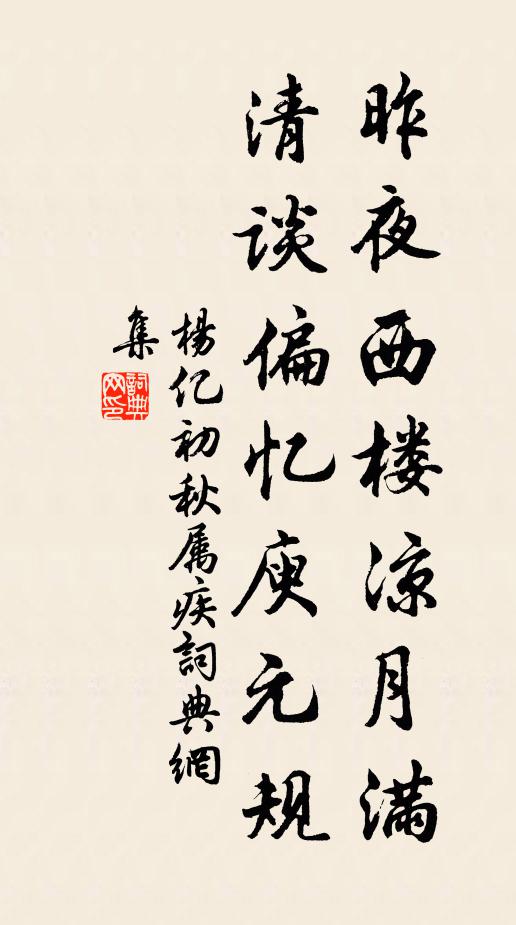 昨夜西楼凉月满
清谈偏忆庾元规
楊亿初秋属疾詞典網
集
詞典网印